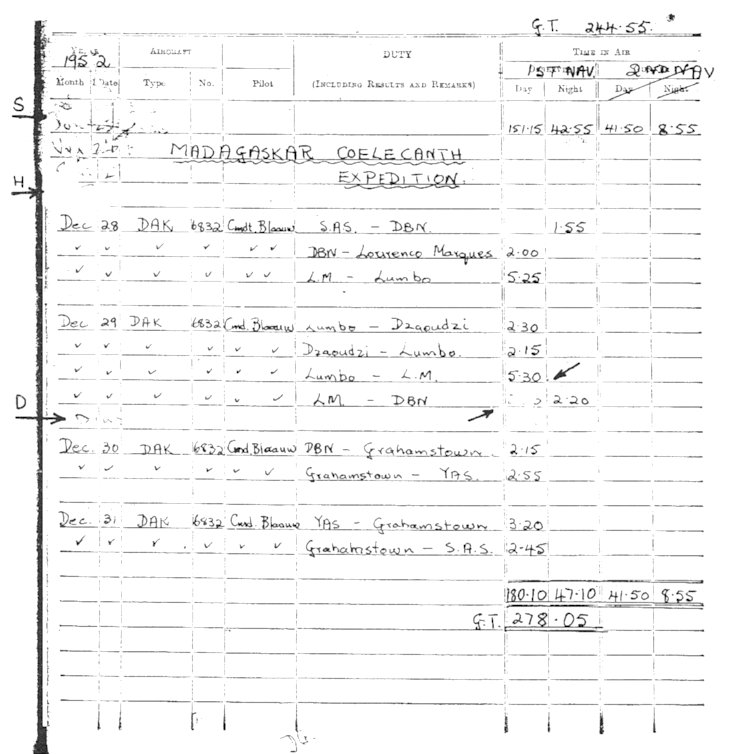 G.T. 244.55. *
YEAR AIRCRAFT DUTY TIME IN AIR
1952 1ST NAV. 2ND NAV
Month Date Type No. Pilot (INCLUDING RESULTS AND REMARKS) Day Night Day Night
S
151.15 42.55 41.50 8.55
MADAGASKAR COELECANTH
H EXPEDITION.
Dec 28 DAK 6832 Cmdt. Blaauw S.A.S. - DBN. 1.55
✓ ✓ ✓ ✓ ✓ ✓ DBN - Lourenco Marques 2.00
✓ ✓ ✓ ✓ ✓ ✓ L.M. - Lumbo 5.25
Dec 29 DAK 6832 Cmd. Blaauw Lumbo - Dzaoudzi 2.30
✓ ✓ ✓ ✓ ✓ Dzaoudzi - Lumbo. 2.15
✓ ✓ ✓ ✓ ✓ ✓ Lumbo - L.M. 5.30
D ✓ ✓ ✓ ✓ ✓ ✓ LM - DBN 2.20
Dec. 30 DAK 6832 Cmd. Blaauw DBN - Grahamstown. 2.15
✓ ✓ ✓ ✓ ✓ Grahamstown - YAS. 2.55
Dec. 31 DAK 6832 Cmd. Blaauw YAS - Grahamstown 3.20
✓ ✓ ✓ ✓ ✓ ✓ Grahamstown - S.A.S. 2.45
180.10 47.10 41.50 8.55
G.T. 278.05